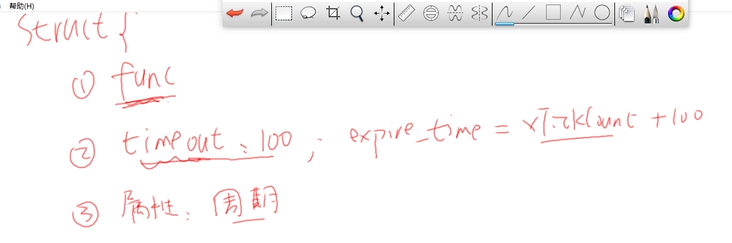 帮助(H)
struct{
① func
② timeout:100; expire_time = xTickCount +100
③ 属性: 周期